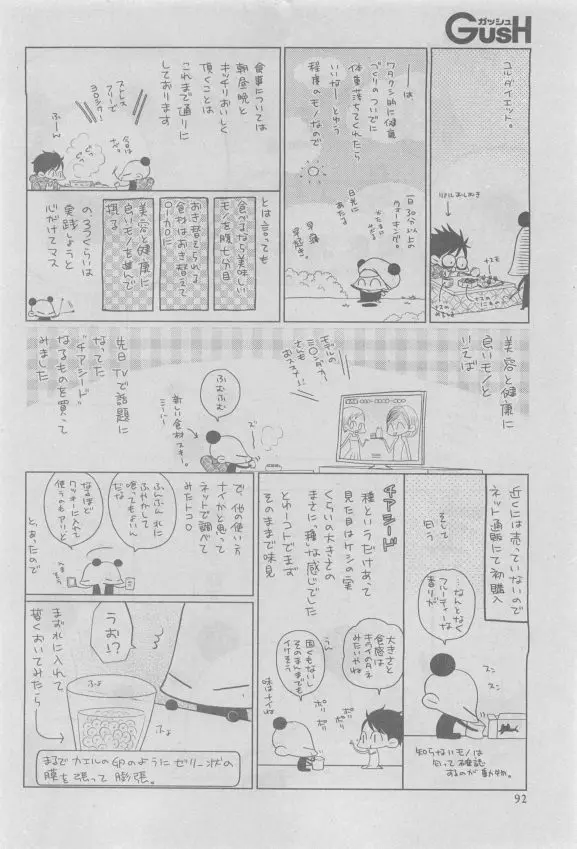 ガッシュ
GUSH
ユルダイエット。
リアルおしぬき
ナスモ
ワタクシ的に健康
づくりのついでに
体重落ちてくれたら
いいなーしゅう
程度のモノなので
一日30分以上の
ウォーキング。
日光に
あたる
早寝
早起き。
食事については
朝昼晩と
キッチリおいしく
頂くことは
これまで通りに
しております
ストレス
フリーで
ヨロシク!
とは言っても
食べるなら美味しい
モノを腹七分目
おき替えられる
食材はおき替えて
ローカロに
美容と健康に
良いモノを進んで
摂る
の3つくらいは
実践しようと
心がけてマス
美容と健康に
良いモノと
いえば
モデルの
ミ〇ンダ・カー
さんも
おススメ!!
ふむふむ
新しい食材スキー。
ミーハー
先日TVで話題に
なってた
"チアシード"
なるものを買って
みました
近くには売っていないので
ネット通販にて初購入
そして
匂う
…なんとなく
フルーティーな
香りが
スン
スン
知らないモノは
匂って確認
するのが動物。
チアシード
種というだけあって
見た目はケシの実
くらいの大きさの
まさに"種"な感じでした
とゆーコトでまず
そのままで味見
大きさと
食感は
キウイのタネ
みたいやね
ポリ
ポリ
ポリ
ポリ
うん
固くもないし
そのまんまでも
イケそう
味はナイね
で、他の使い方
ナイかと思って
ネットで調べて
みたトコロ
ふんふん水に
ふやかして
喰ってもよいん
だな
なるほど
クッキーに入れて
使うのもアリ、と
と、あったので
まず水に入れて
暫くおいてみたら
うお!?
ふよ
ふよ
まるでカエルの卵のようにゼリー状の
膜を張って膨張。
92